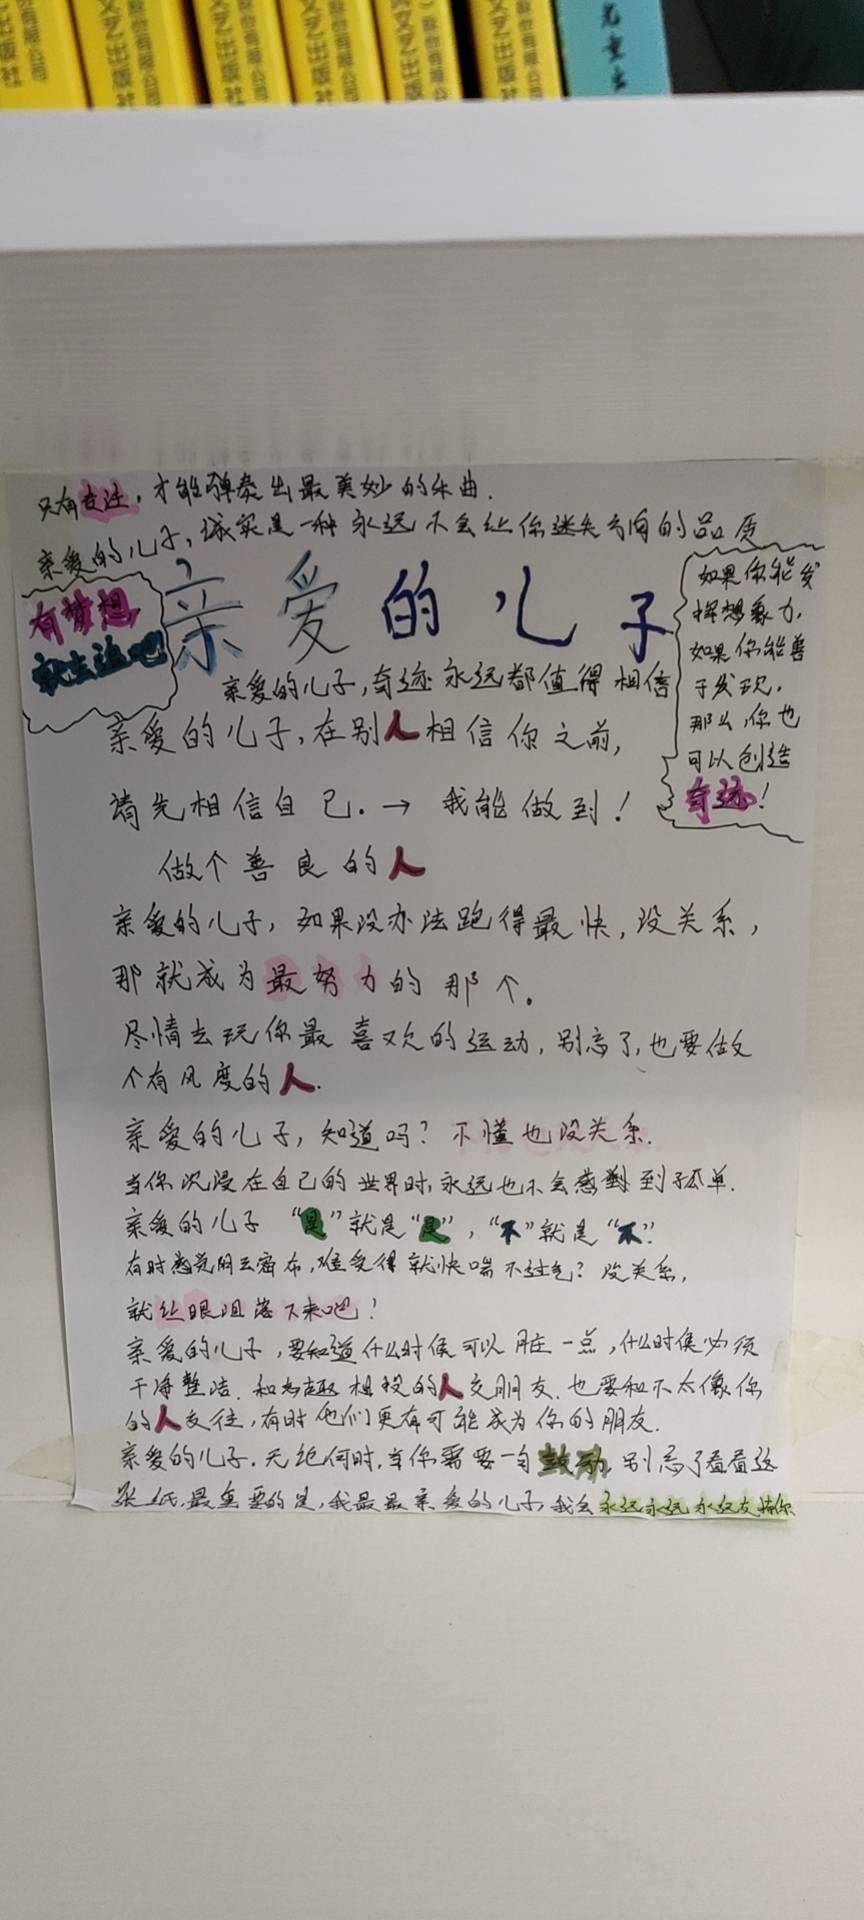 文艺出版社
份有限公司
文艺出版社
份有限公司
文艺出版社
份有限公司
文艺出版社
只有专注，才能弹奏出最美妙的乐曲.
亲爱的儿子，诚实是一种永远不会让你迷失方向的品质
有梦想，
就去追吧
亲爱的儿子
如果你能发
挥想象力，
如果你能善
于发现，
那么，你也
可以创造
奇迹！
亲爱的儿子，奇迹永远都值得相信
亲爱的儿子，在别人相信你之前，
请先相信自己.→我能做到！
做个善良的人
亲爱的儿子，如果没办法跑得最快，没关系，
那就成为最努力的那个。
尽情去玩你最喜欢的运动，别忘了，也要做
个有风度的人.
亲爱的儿子，知道吗？不懂也没关系.
当你沉浸在自己的世界时，永远也不会感到孤单.
亲爱的儿子“是”就是“是”，“不”就是“不”.
有时感觉阴云密布，难受得就快喘不过气？没关系，
就让眼泪落下来吧！
亲爱的儿子，要知道什么时候可以脏一点，什么时候必须
干净整洁.和志趣相投的人交朋友.也要和不太像你
的人交往，有时他们更有可能成为你的朋友.
亲爱的儿子.无论何时，当你需要一句鼓励，别忘了看看这
张纸.最重要的是，我最最亲爱的儿子，我会永远永远永远支持你